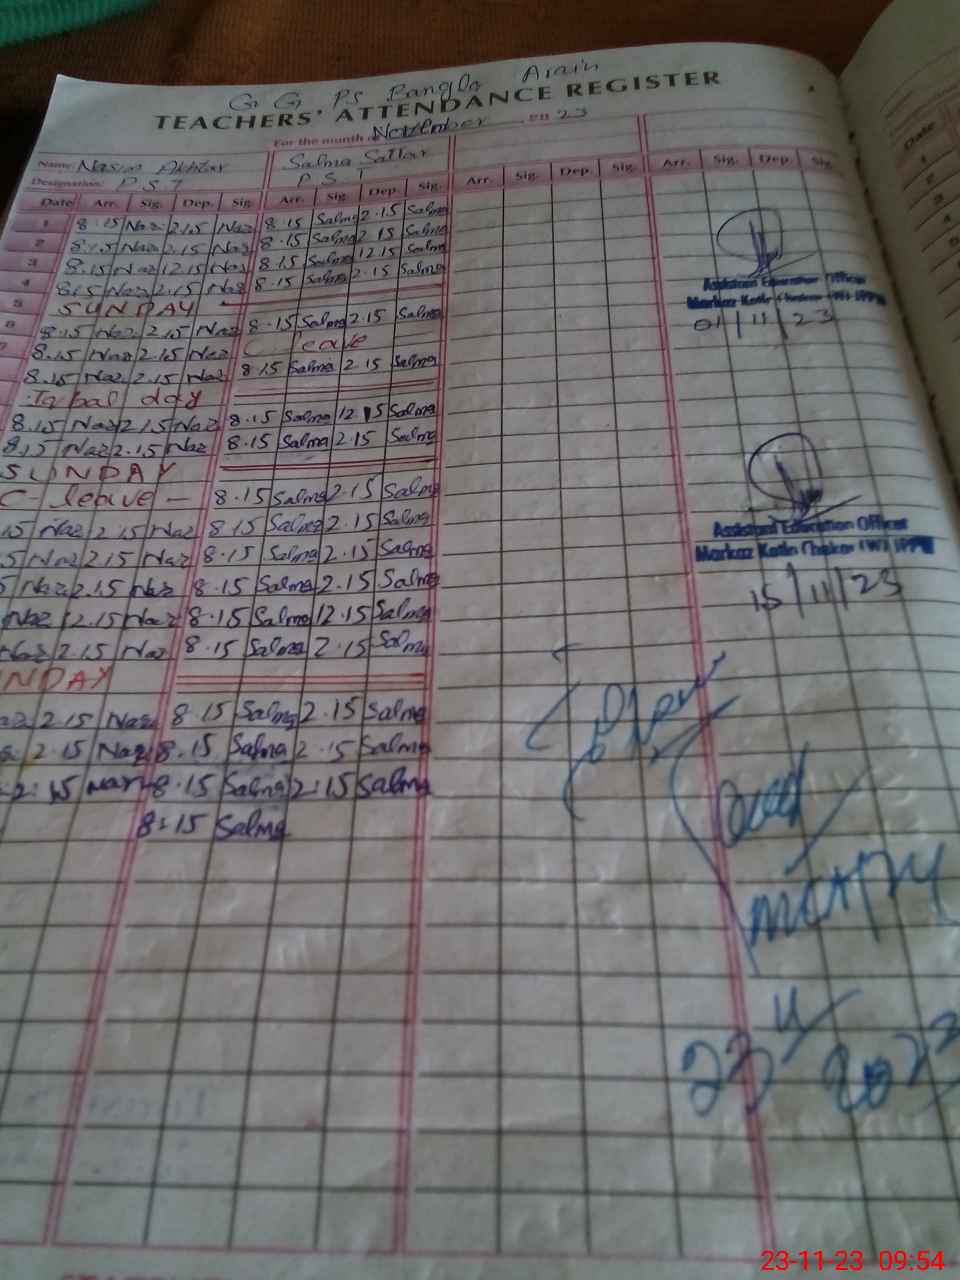 G G PS Bangla Arain
TEACHERS' ATTENDANCE REGISTER
For the month of November 20 23
Name: Nasim Akhtar Salma Sattar
Designation: P S T P S T
Date Arr. Sig. Dep. Sig. Arr. Sig. Dep. Sig. Arr. Sig. Dep. Sig. Arr. Sig. Dep. Sig.
1 8.15 Naz 2.15 Naz 8.15 Salma 2.15 Salma
2 8.15 Naz 2.15 Naz 8.15 Salma 2.15 Salma
3 8.15 Naz 12.15 Naz 8.15 Salma 12.15 Salma
4 8.15 Naz 2.15 Naz 8.15 Salma 2.15 Salma
5 SUNDAY
6 8.15 Naz 2.15 Naz 8.15 Salma 2.15 Salma
7 8.15 Naz 2.15 Naz C leave
8.15 Naz 2.15 Naz 8.15 Salma 2.15 Salma
Iqbal day
8.15 Naz 2.15 Naz 8.15 Salma 12.15 Salma
8.15 Naz 2.15 Naz 8.15 Salma 2.15 Salma
SUNDAY
C- leave - 8.15 Salma 2.15 Salma
15 Naz 2.15 Naz 8.15 Salma 2.15 Salma
5 Naz 2.15 Naz 8.15 Salma 2.15 Salma
5 Naz 2.15 Naz 8.15 Salma 2.15 Salma
Naz 12.15 Naz 8.15 Salma 12.15 Salma
Naz 2.15 Naz 8.15 Salma 2.15 Salma
NDAY
az 2.15 Naz 8.15 Salma 2.15 Salma
2.15 Naz 8.15 Salma 2.15 Salma
2:15 Naz 8.15 Salma 2:15 Salma
8:15 Salma
Assistant Education Officer
Markaz
01/11/23
Assistant Education Officer
Markaz
15/11/23
23 11 2023
23-11-23 09:54